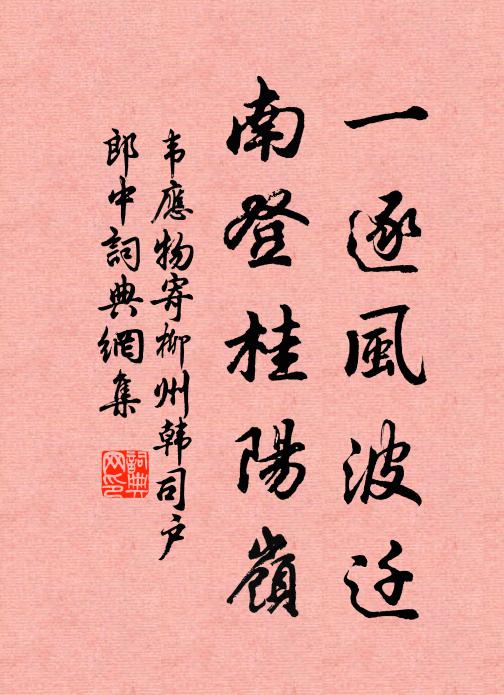 一逐风波迁
南登桂陽嶺
韦應物寄柳州韩司户
郎中詞典網集
詞典网印